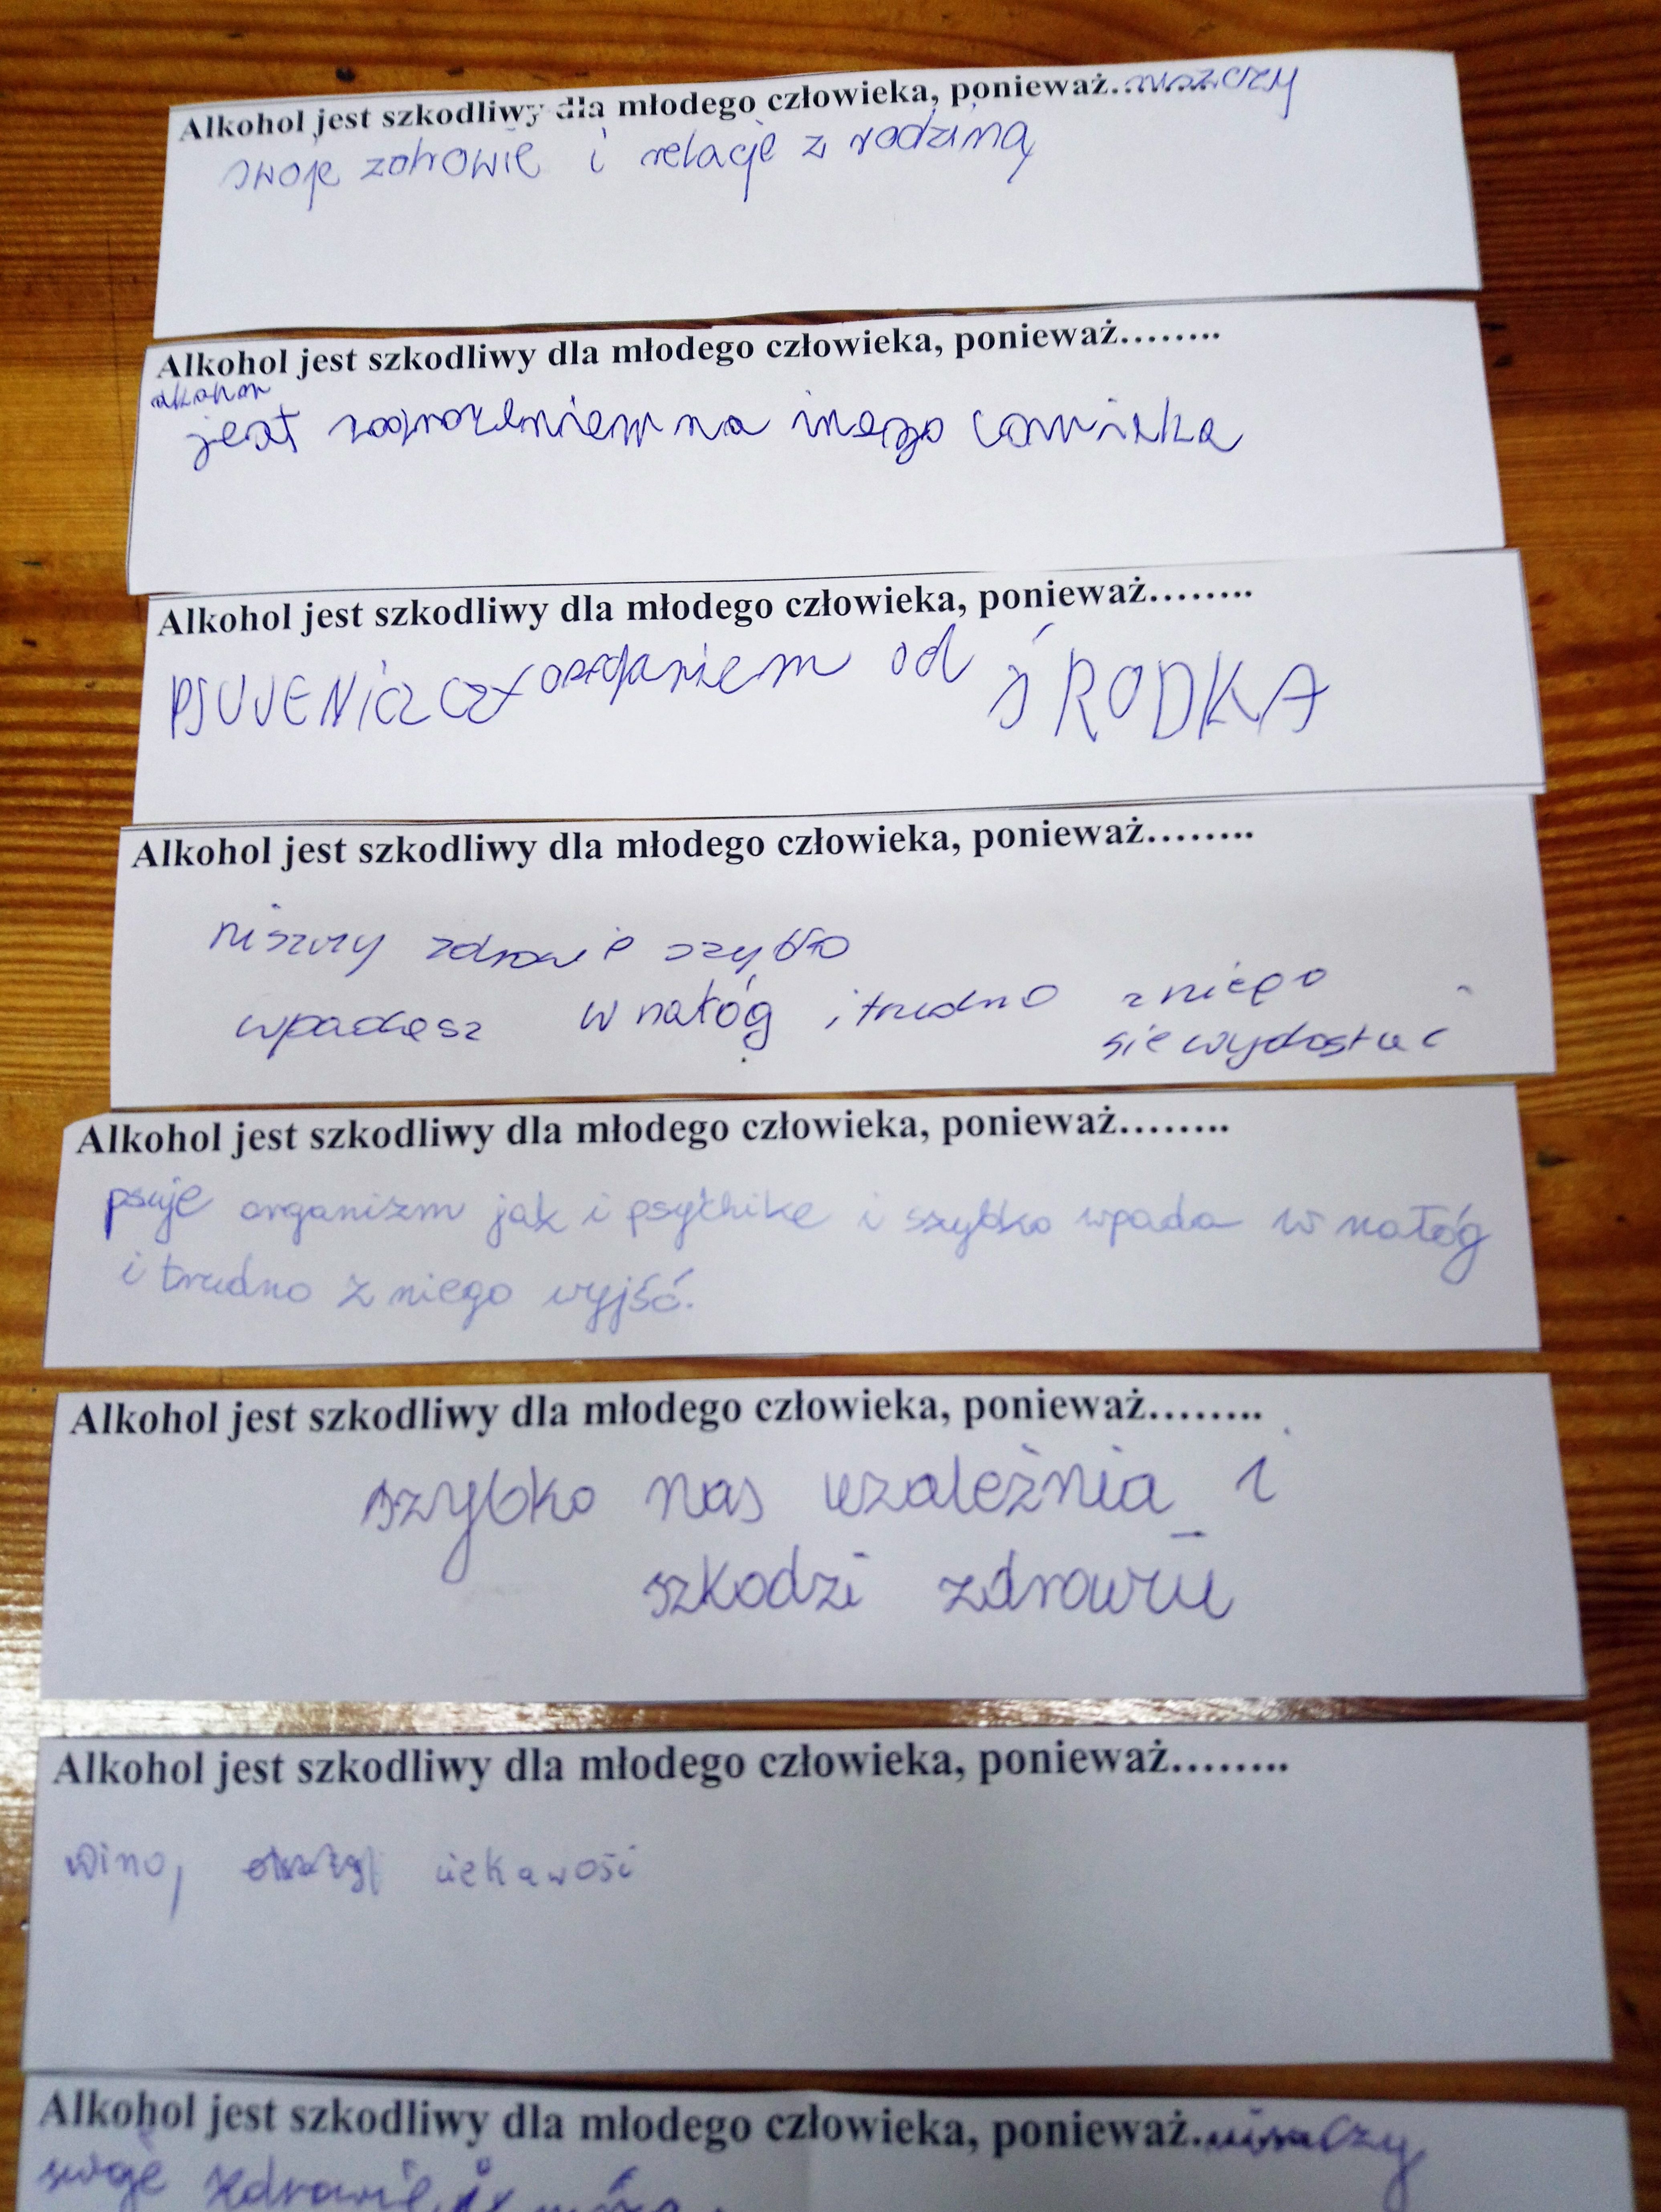 Alkohol jest szkodliwy dla młodego człowieka, ponieważ..niszczy
swoje zdrowie i relacje z rodziną
Alkohol jest szkodliwy dla młodego człowieka, ponieważ........
jest zagrożeniem na
Alkohol jest szkodliwy dla młodego człowieka, ponieważ........
PSUJE NiszczY od ŚRODKA
Alkohol jest szkodliwy dla młodego człowieka, ponieważ........
niszczy zdrowie szybko
wpadasz w nałóg i trudno z niego
sie wydostać
Alkohol jest szkodliwy dla młodego człowieka, ponieważ........
psuje organizm jak i psychike i szybko wpada w nałóg
i trudno z niego wyjść.
Alkohol jest szkodliwy dla młodego człowieka, ponieważ........
szybko nas uzależnia i
szkodzi zdrowiu
Alkohol jest szkodliwy dla młodego człowieka, ponieważ........
wino, ciekawość
Alkohol jest szkodliwy dla młodego człowieka, ponieważ..niszczy
swoje zdrowie